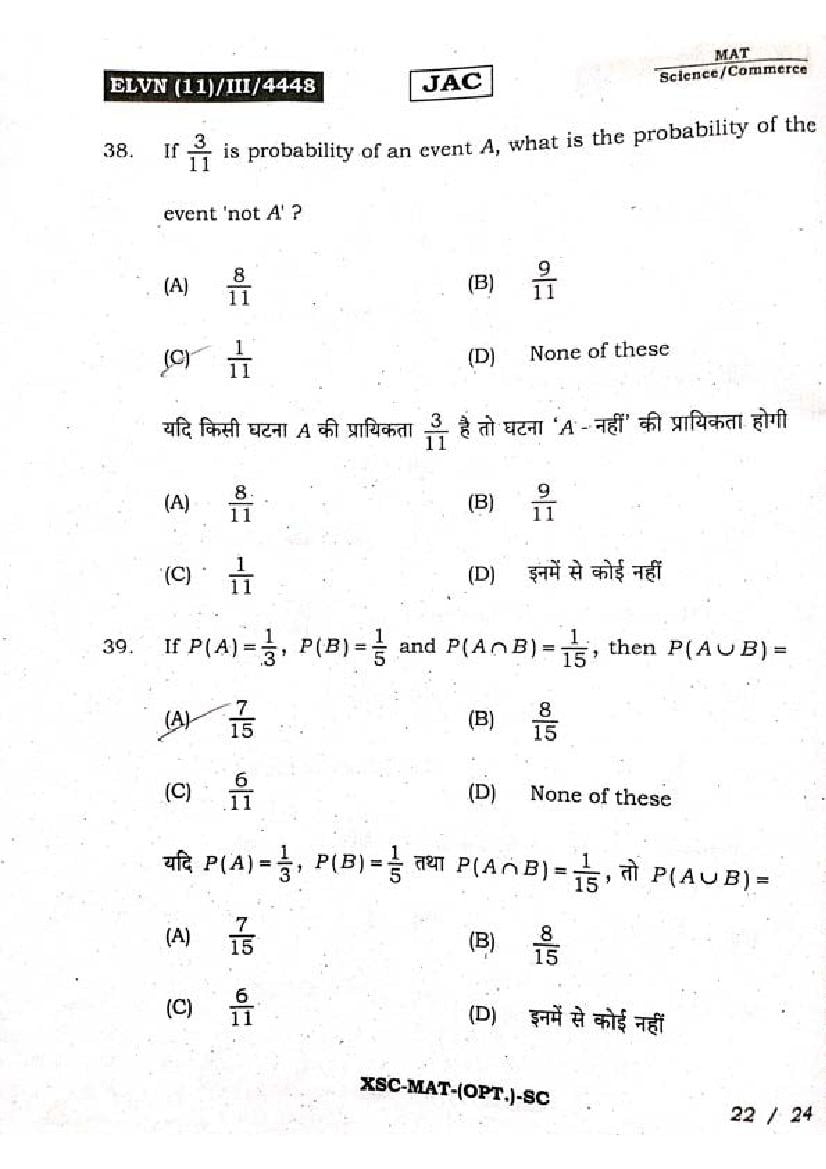 MAT
ELVN (11)/III/4448 JAC Science/Commerce
38. If 3/11 is probability of an event A, what is the probability of the
event 'not A' ?
(A) 8/11 (B) 9/11
(C) 1/11 (D) None of these
यदि किसी घटना A की प्रायिकता 3/11 है तो घटना ‘A - नहीं’ की प्रायिकता होगी
(A) 8/11 (B) 9/11
(C) 1/11 (D) इनमें से कोई नहीं
39. If P(A) = 1/3, P(B) = 1/5 and P(A∩B) = 1/15, then P(A∪B) =
(A) 7/15 (B) 8/15
(C) 6/11 (D) None of these
यदि P(A) = 1/3, P(B) = 1/5 तथा P(A∩B) = 1/15, तो P(A∪B) =
(A) 7/15 (B) 8/15
(C) 6/11 (D) इनमें से कोई नहीं
XSC-MAT-(OPT.)-SC
22 / 24